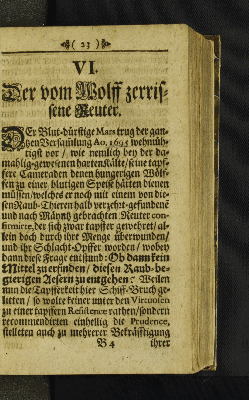 ( 23 )
VI.
Der vom Wolff zerris-
sene Reuter.
DEr Blut-dürstige Mars trug der gan-
tzen Versamlung Ao. 1695 wehmüh-
tigst vor / wie nemlich bey der da-
mahlig-gewesnen harten Kälte / seine tapf-
fere Cameraden denen hungerigen Wölf-
fen zu einer blutigen Speise hätten dienen
müssen / welches er noch mit einem von die-
sen Raub-Thieren halb verzehrt-gefundene
und nach Mäyntz gebrachten Reuter con-
firmirte, der sich zwar tapffer gewehret / al-
lein doch durch ihre Menge überwunden /
und ihr Schlacht-Opffer worden / wobey
dann diese Frage entstund: Ob dann kein
Mittel zu erfinden / diesen Raub-be-
gierigen Aesern zu entgehen? Weilen
nun die Tapfferkeit hier Schiff-Bruch ge-
litten / so wolte keiner unter den Virtuosen
zu einer tapffern Resistence rathen / sondern
recommendirten einhellig die Prudence,
stelleten auch zu mehrerer Bekräfftigung
B 4 ihrer